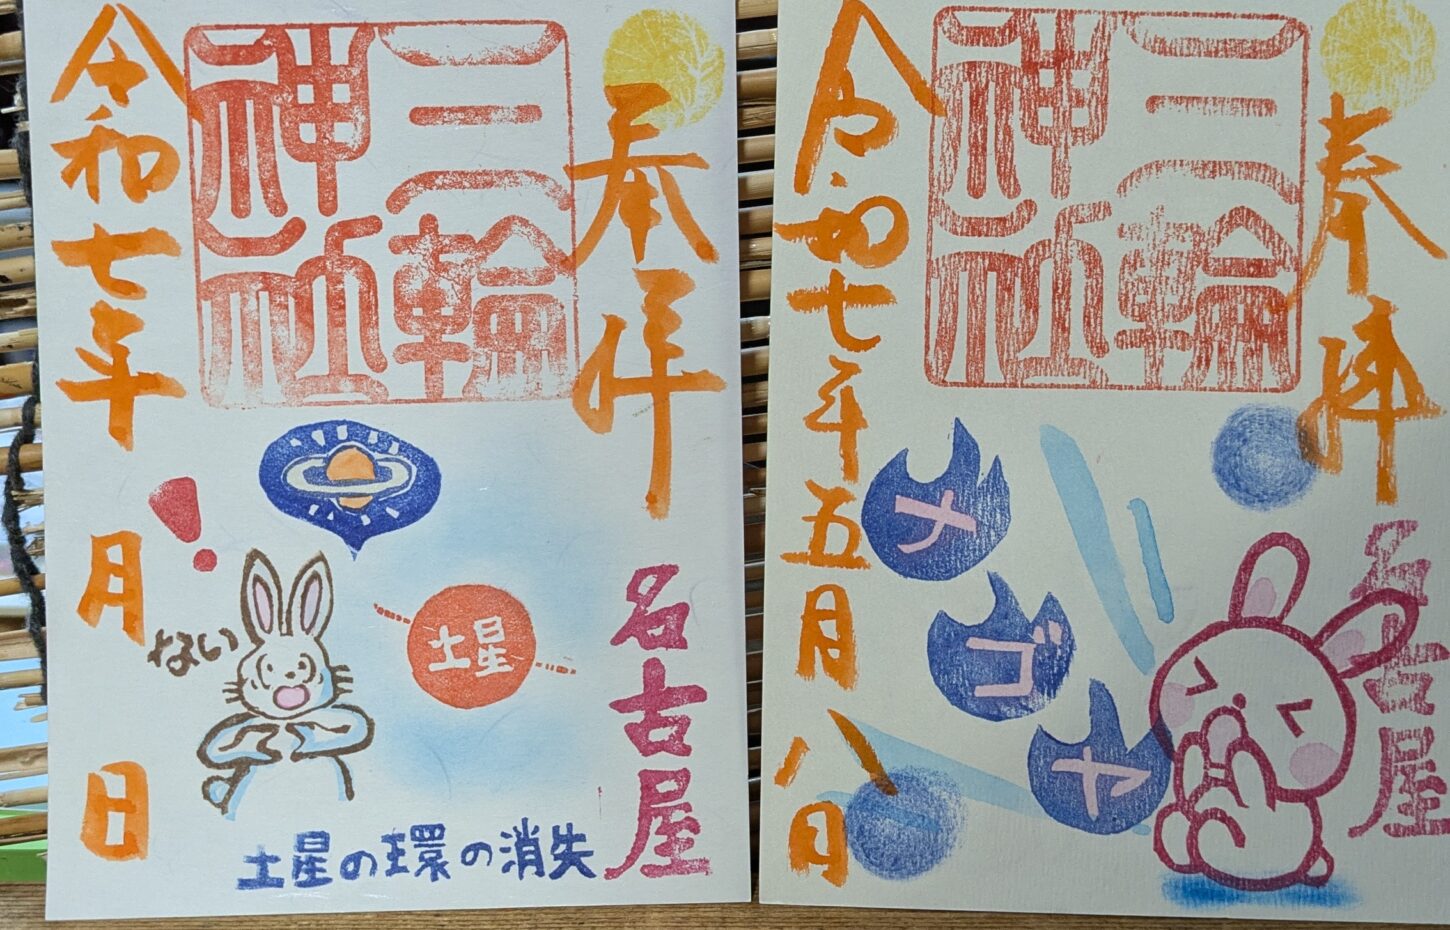 奉拝
三輪
神社
令和七年 月 日
名古屋
！
ない
土星
土星の環の消失
奉拝
三輪
神社
令和七年五月八日
名古屋
メ
ゴ
ヤ